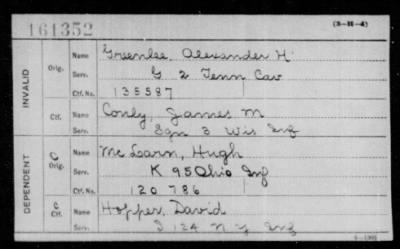 161352
(3-H-4)
INVALID
Orig. Name Greenlee, Alexander H
Serv. G 2 Tenn Cav
Ctf. No. 135587
Ctf. Name Conly, James M
Serv. Sgn 3 Wis Inf
DEPENDENT
C Orig. Name Mc Larn, Hugh
Serv. K 95 Ohio Inf
Ctf. No. 120786
C Ctf. Name Hopper, David
Serv. I 124 N Y Inf